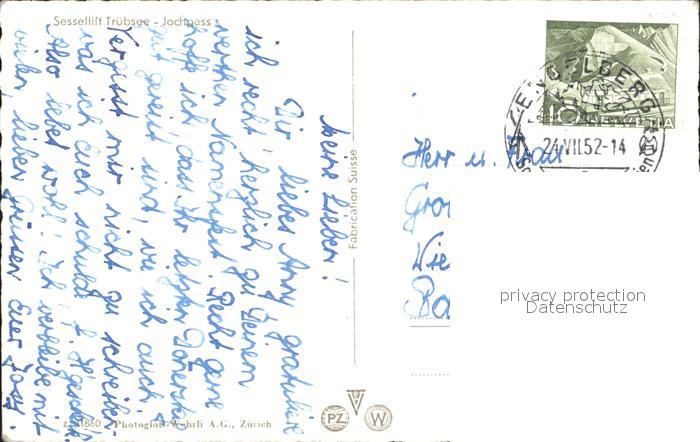 Sessellift Trübsee - Jochpass
Meine Lieben!
Dir liebes Anny gratuliere
ich recht herzlich zu Deinem
werten Namensfest. Recht gerne
hoffe ich das Ihr letzten Donerstag
gut gereist sind, wie ich auch.
Vergisst mir nicht zu schreiben
was ich Euch schulde f.
Also lebet wohl! Ich verbleibe mit
vielen lieben Grüssen Euer
Fabrication Suisse
Photoglob-Wehrli A.G., Zürich
PZ
W
ENGELBERG
24.VII.52-14
HELVETIA
Herr u. Frau
privacy protection
Datenschutz